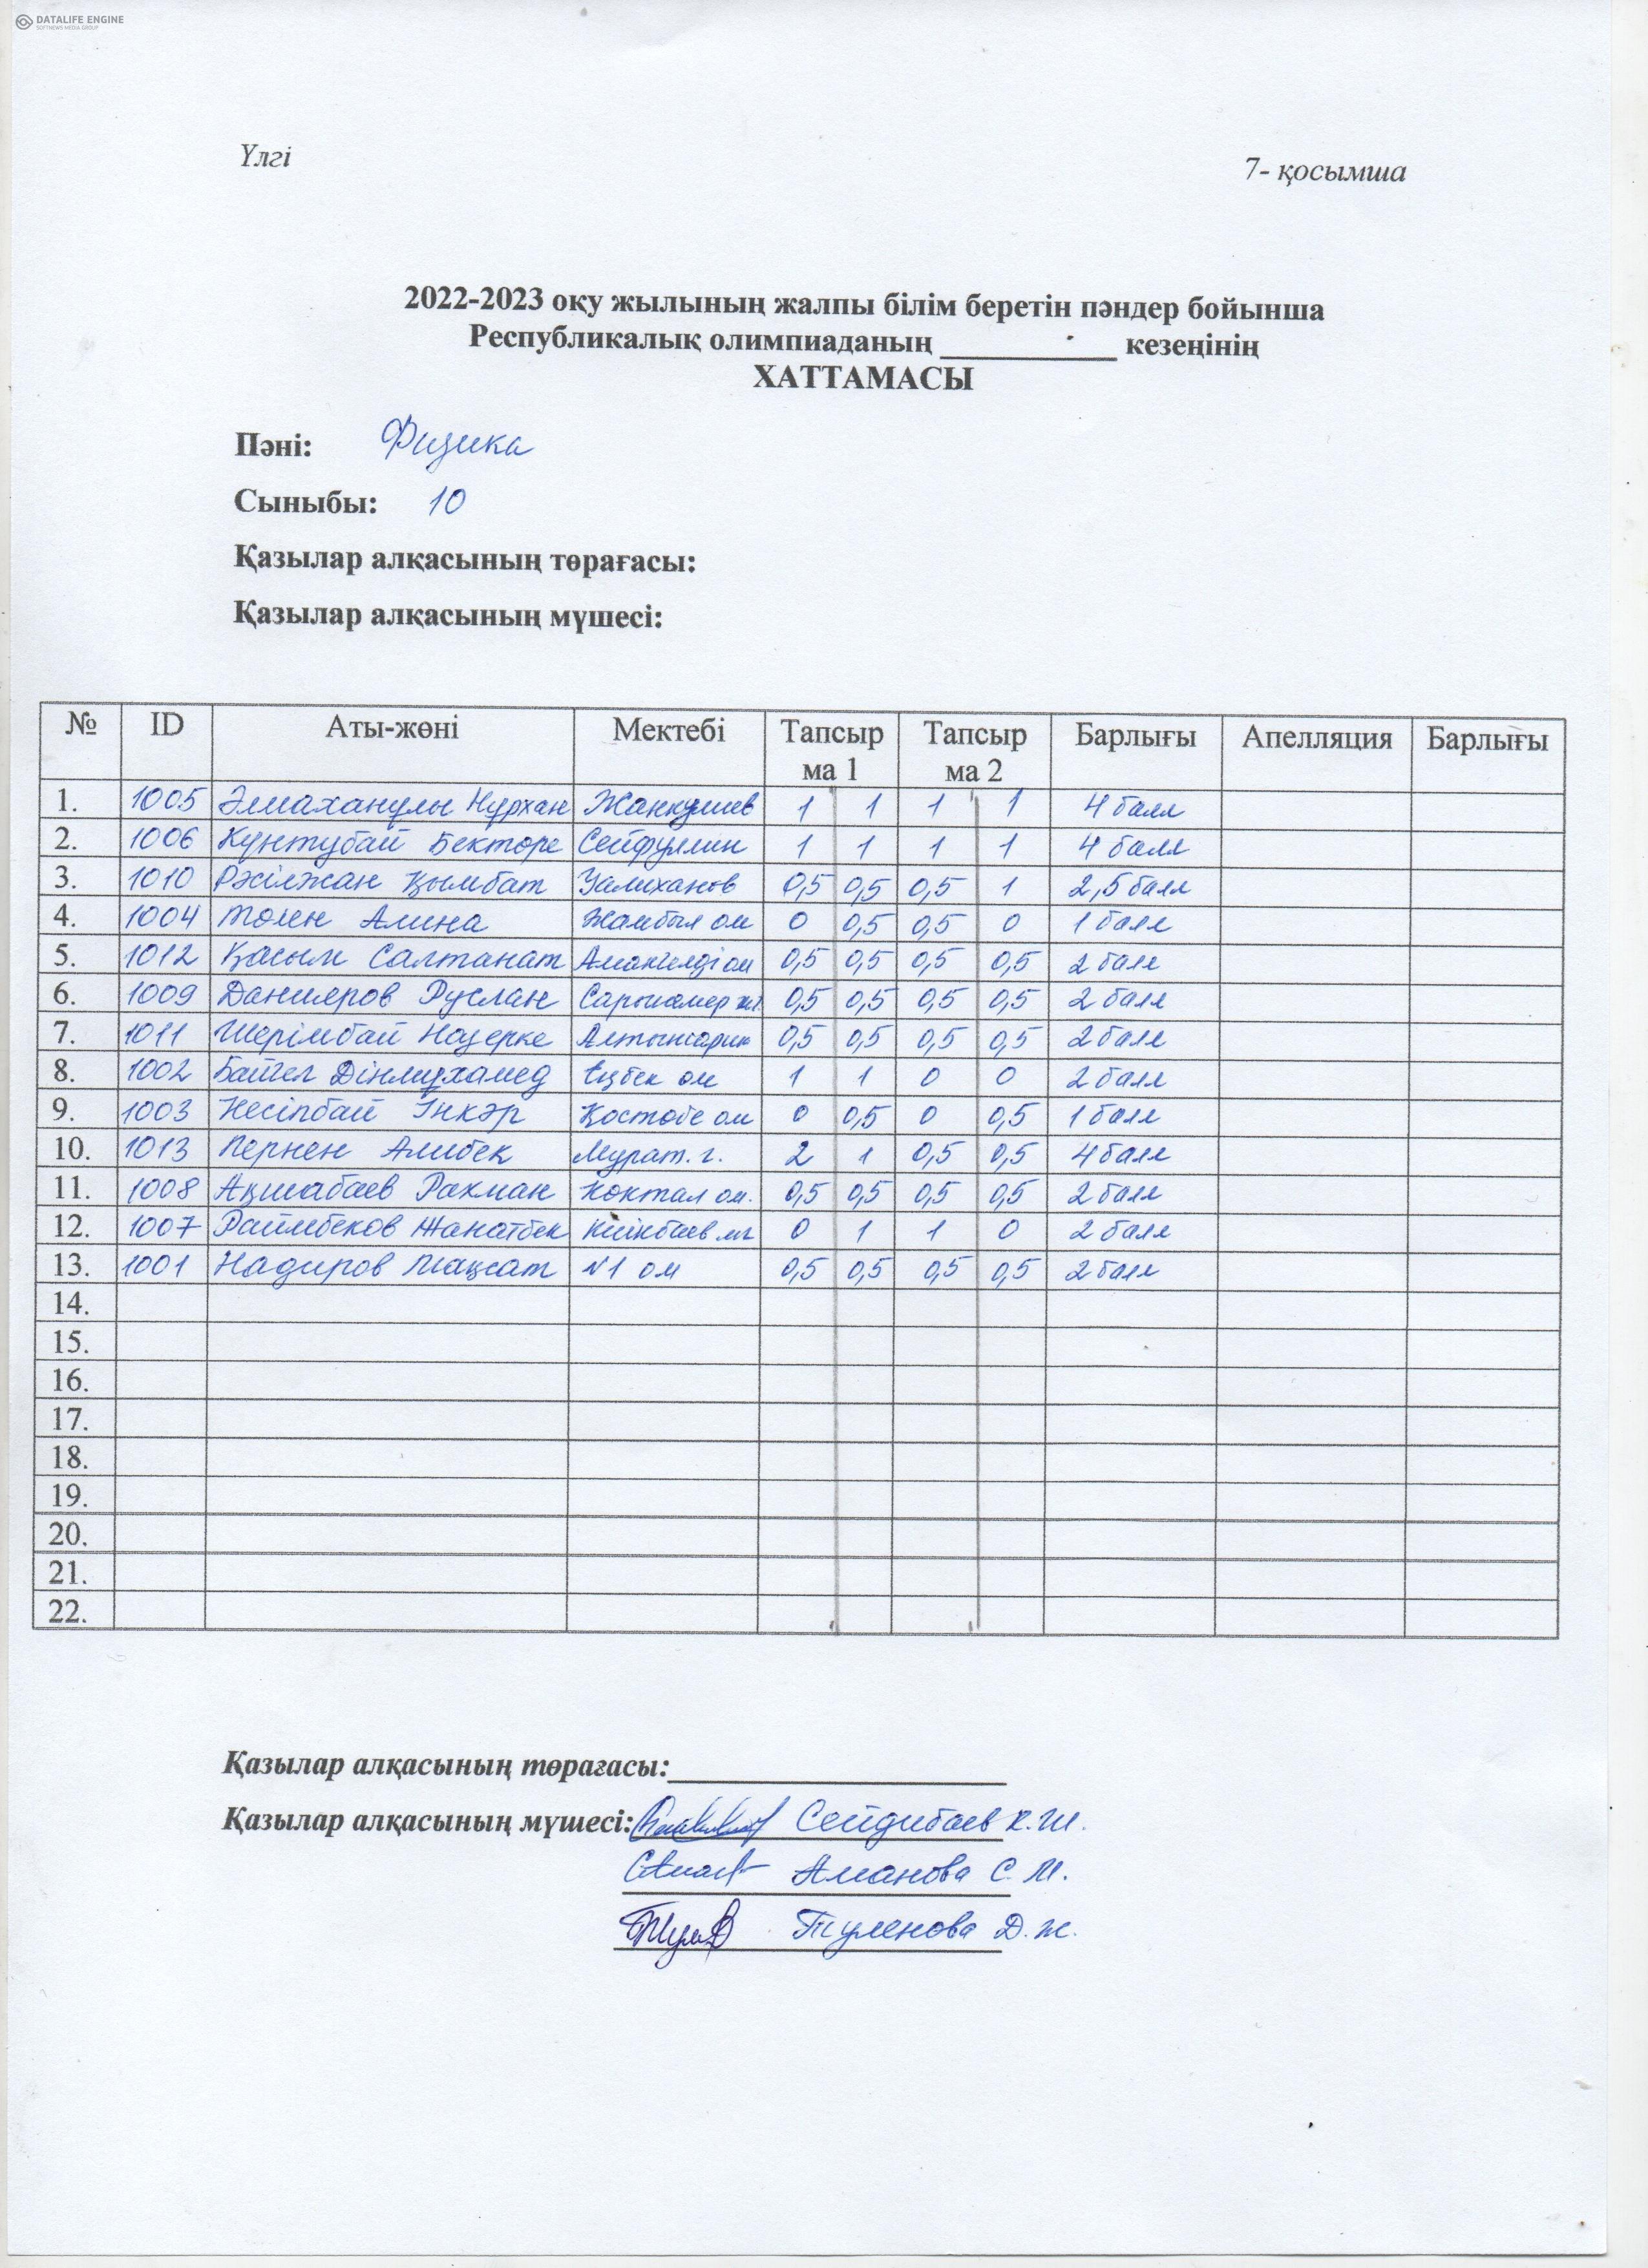 DATALIFE ENGINE
SOFTNEWS MEDIA GROUP
Үлгі
7- қосымша
2022-2023 оқу жылының жалпы білім беретін пәндер бойынша
Республикалық олимпиаданың ___________ кезеңінің
ХАТТАМАСЫ
Пәні: Физика
Сыныбы: 10
Қазылар алқасының төрағасы:
Қазылар алқасының мүшесі:
№ ID Аты-жөні Мектебі Тапсырма 1 Тапсырма 2 Барлығы Апелляция Барлығы
1. 1005 Әлиаханұлы Нұрхан 1 1 1 1 4 балл
2. 1006 Күнтубай Бекторе Сейфуллин 1 1 1 1 4 балл
3. 1010 Рәсілжан Қымбат Уалиханов 0,5 0,5 0,5 1 2,5 балл
4. 1004 Төлен Алина Жамбыл ом 0 0,5 0,5 0 1 балл
5. 1012 Қасым Салтанат Амангелді ом 0,5 0,5 0,5 0,5 2 балл
6. 1009 Данияров Руслан 0,5 0,5 0,5 0,5 2 балл
7. 1011 Шерімбай Назерке Алтынсарин 0,5 0,5 0,5 0,5 2 балл
8. 1002 Байгел Дінмұхамед Еңбек ом 1 1 0 0 2 балл
9. 1003 Несіпбай Інкәр Қостөбе ом 0 0,5 0 0,5 1 балл
10. 1013 Пернен Алибек Мурат. г. 2 1 0,5 0,5 4 балл
11. 1008 Ақшабаев Рахман Көктал ом. 0,5 0,5 0,5 0,5 2 балл
12. 1007 Райымбеков Жанатбек 0 1 1 0 2 балл
13. 1001 Надиров Мақсат №1 ом 0,5 0,5 0,5 0,5 2 балл
14.
15.
16.
17.
18.
19.
20.
21.
22.
Қазылар алқасының төрағасы:
Қазылар алқасының мүшесі: Сейдибаев К.Ш.
Аманова С.М.
Туленова Д.Ж.